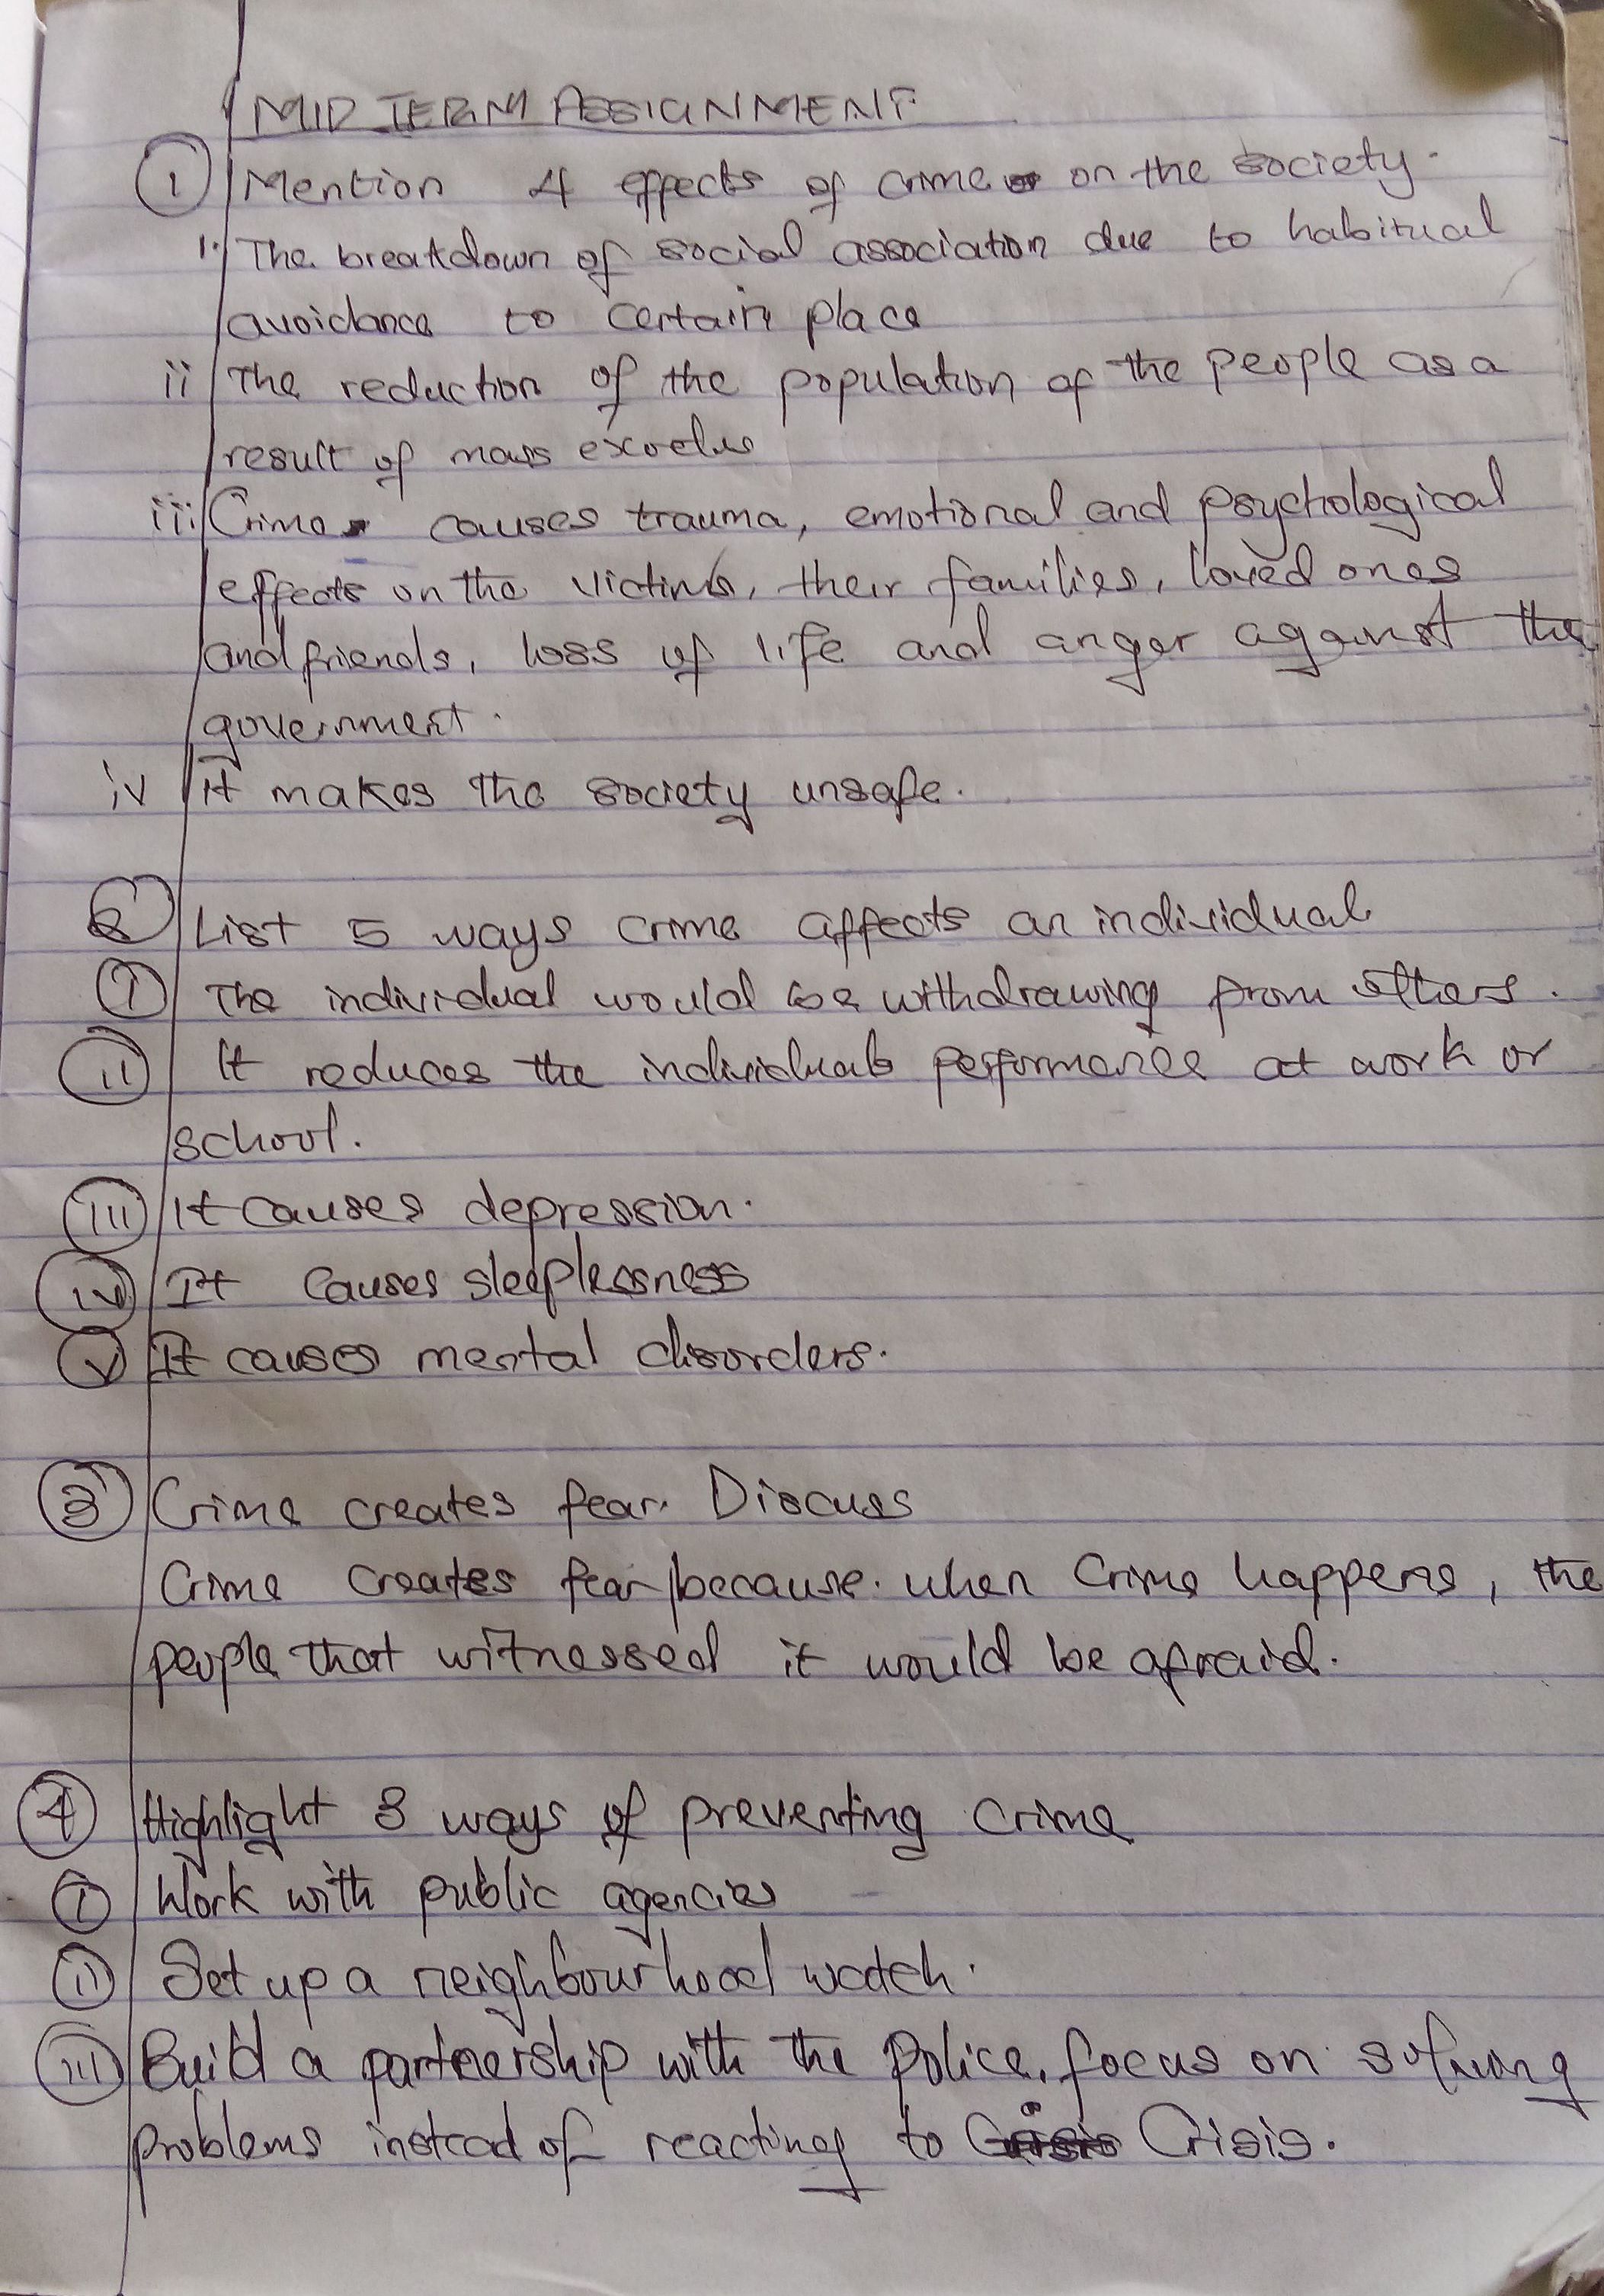 MID TERM ASSIGNMENT
1 Mention 4 effects of crime on the society.
i. The breakdown of social association due to habitual
avoidance to certain place
ii The reduction of the population of the people as a
result of mass exodus
iii Crime causes trauma, emotional and psychological
effects on the victims, their families, loved ones
and friends, loss of life and anger against the
government.
iv It makes the society unsafe.
2 List 5 ways crime affects an individual
I The individual would be withdrawing from others.
II It reduces the individuals performance at work or
school.
III It causes depression.
IV It causes sleeplessness
V It causes mental disorders.
3 Crime creates fear. Discuss
Crime creates fear because. when crime happens, the
people that witnessed it would be afraid.
4 Highlight 3 ways of preventing crime
I Work with public agencies
II Set up a neighbourhood watch.
III Build a partnership with the police, focus on solving
problems instead of reacting to Crisis.